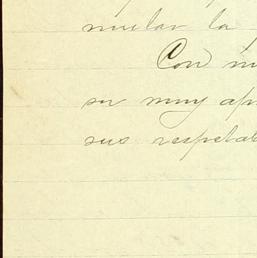 mular la
Con m
su muy ap
sus respeta